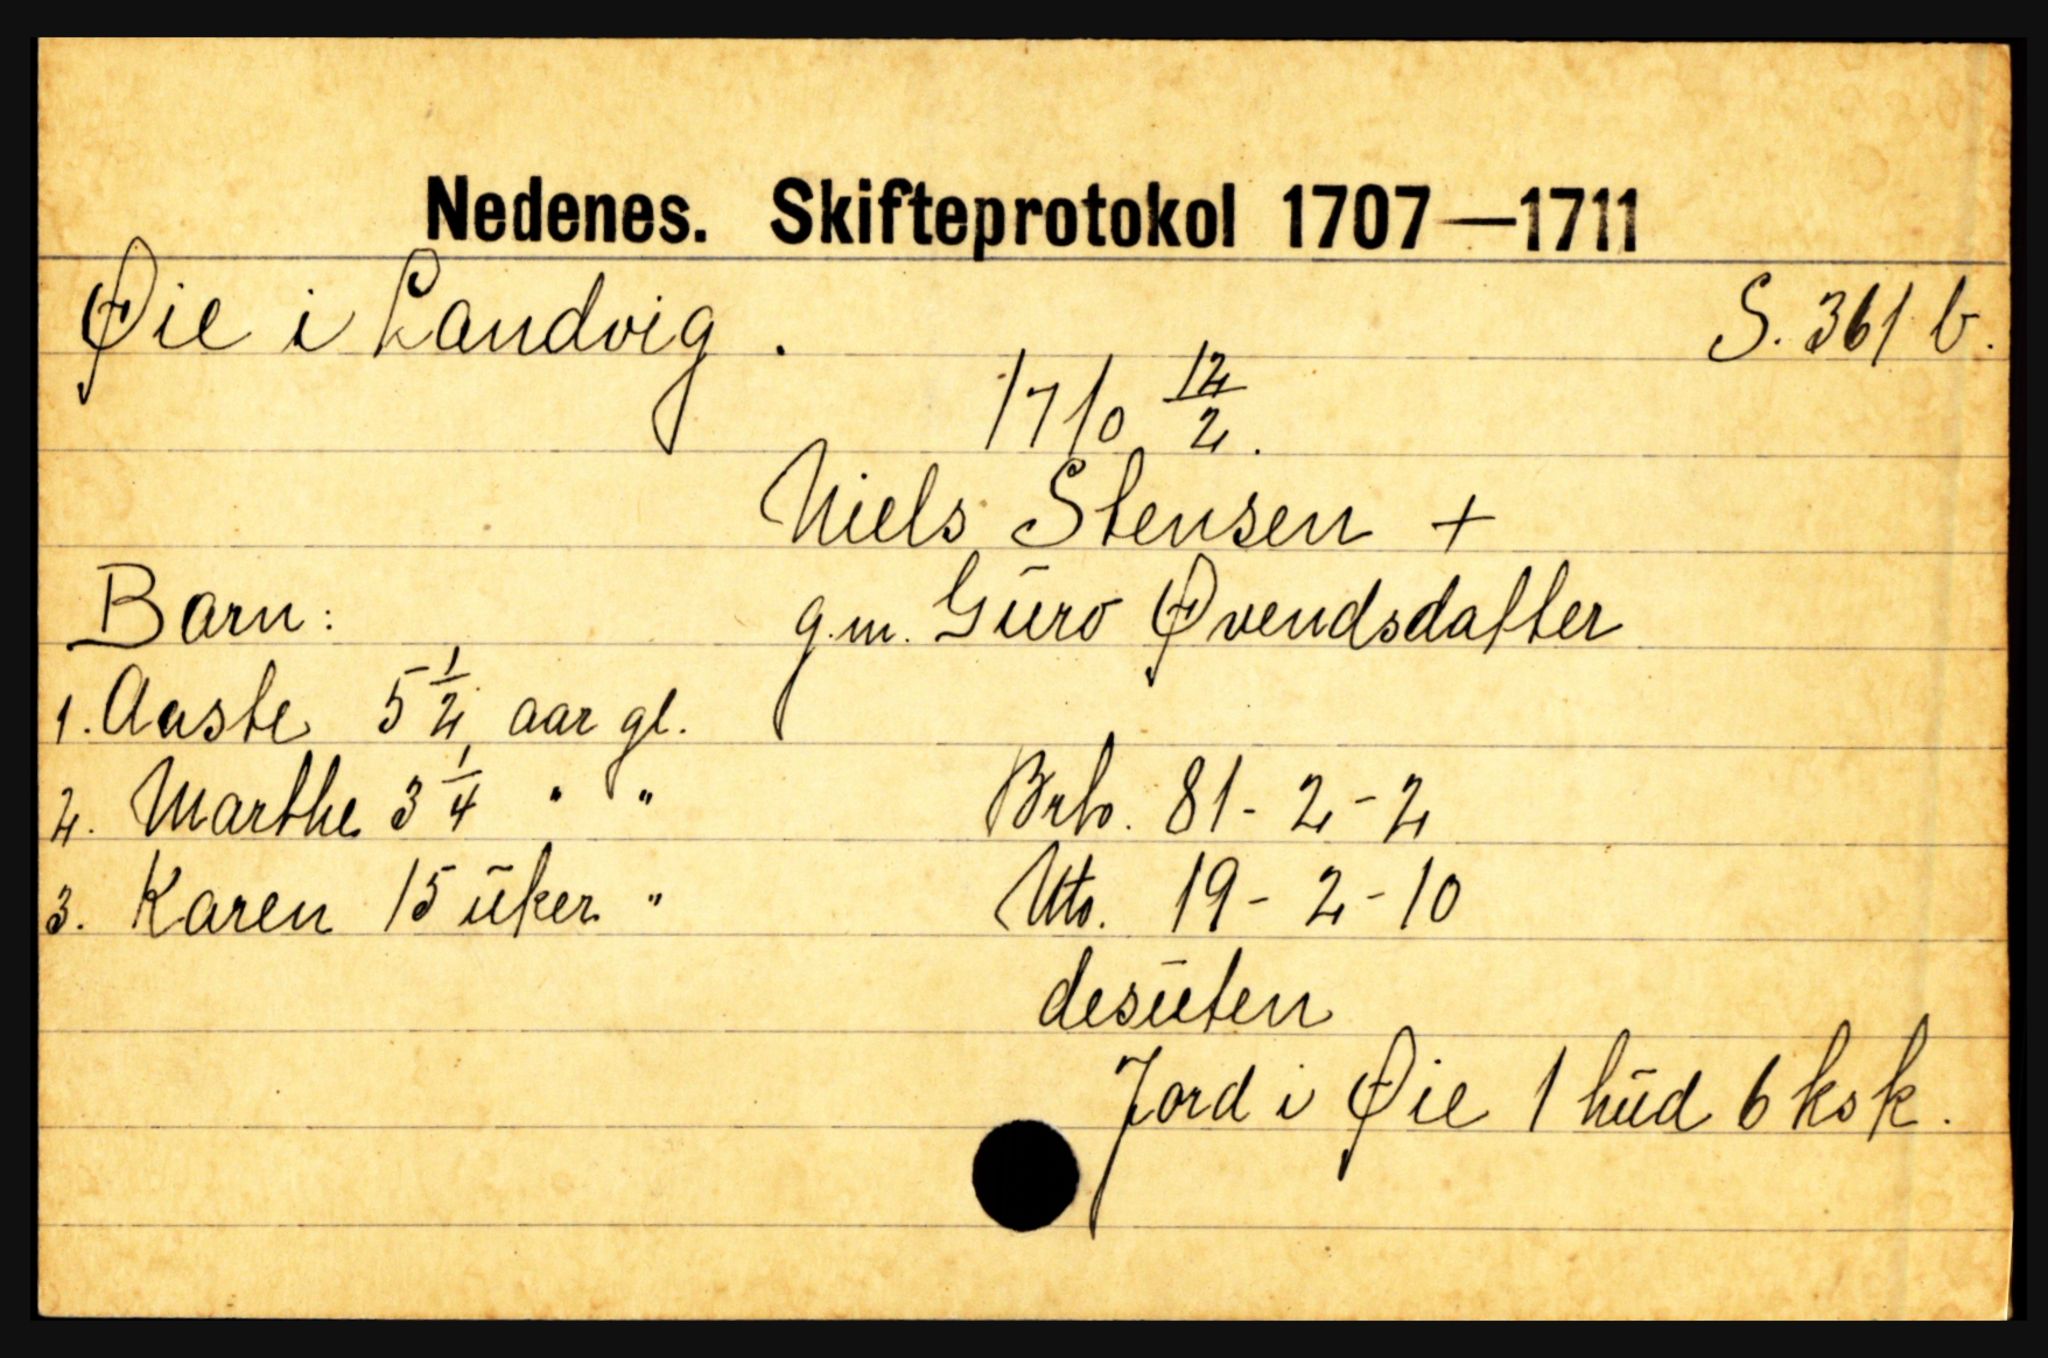 Nedenes. Skifteprotokol 1707—1711
Øie i Landvig. S. 361 b.
1710 12/2.
Niels Stensen +
g.m. Guro Øvendsdatter
Barn:
1. Aaste 5 1/2 aar gl.
2. Marthe 3 1/4 " " Brto. 81 - 2 - 2
3. Karen 15 uker " Nto. 19 - 2 - 10
desuten
Jord i Øie 1 hud 6 ksk.